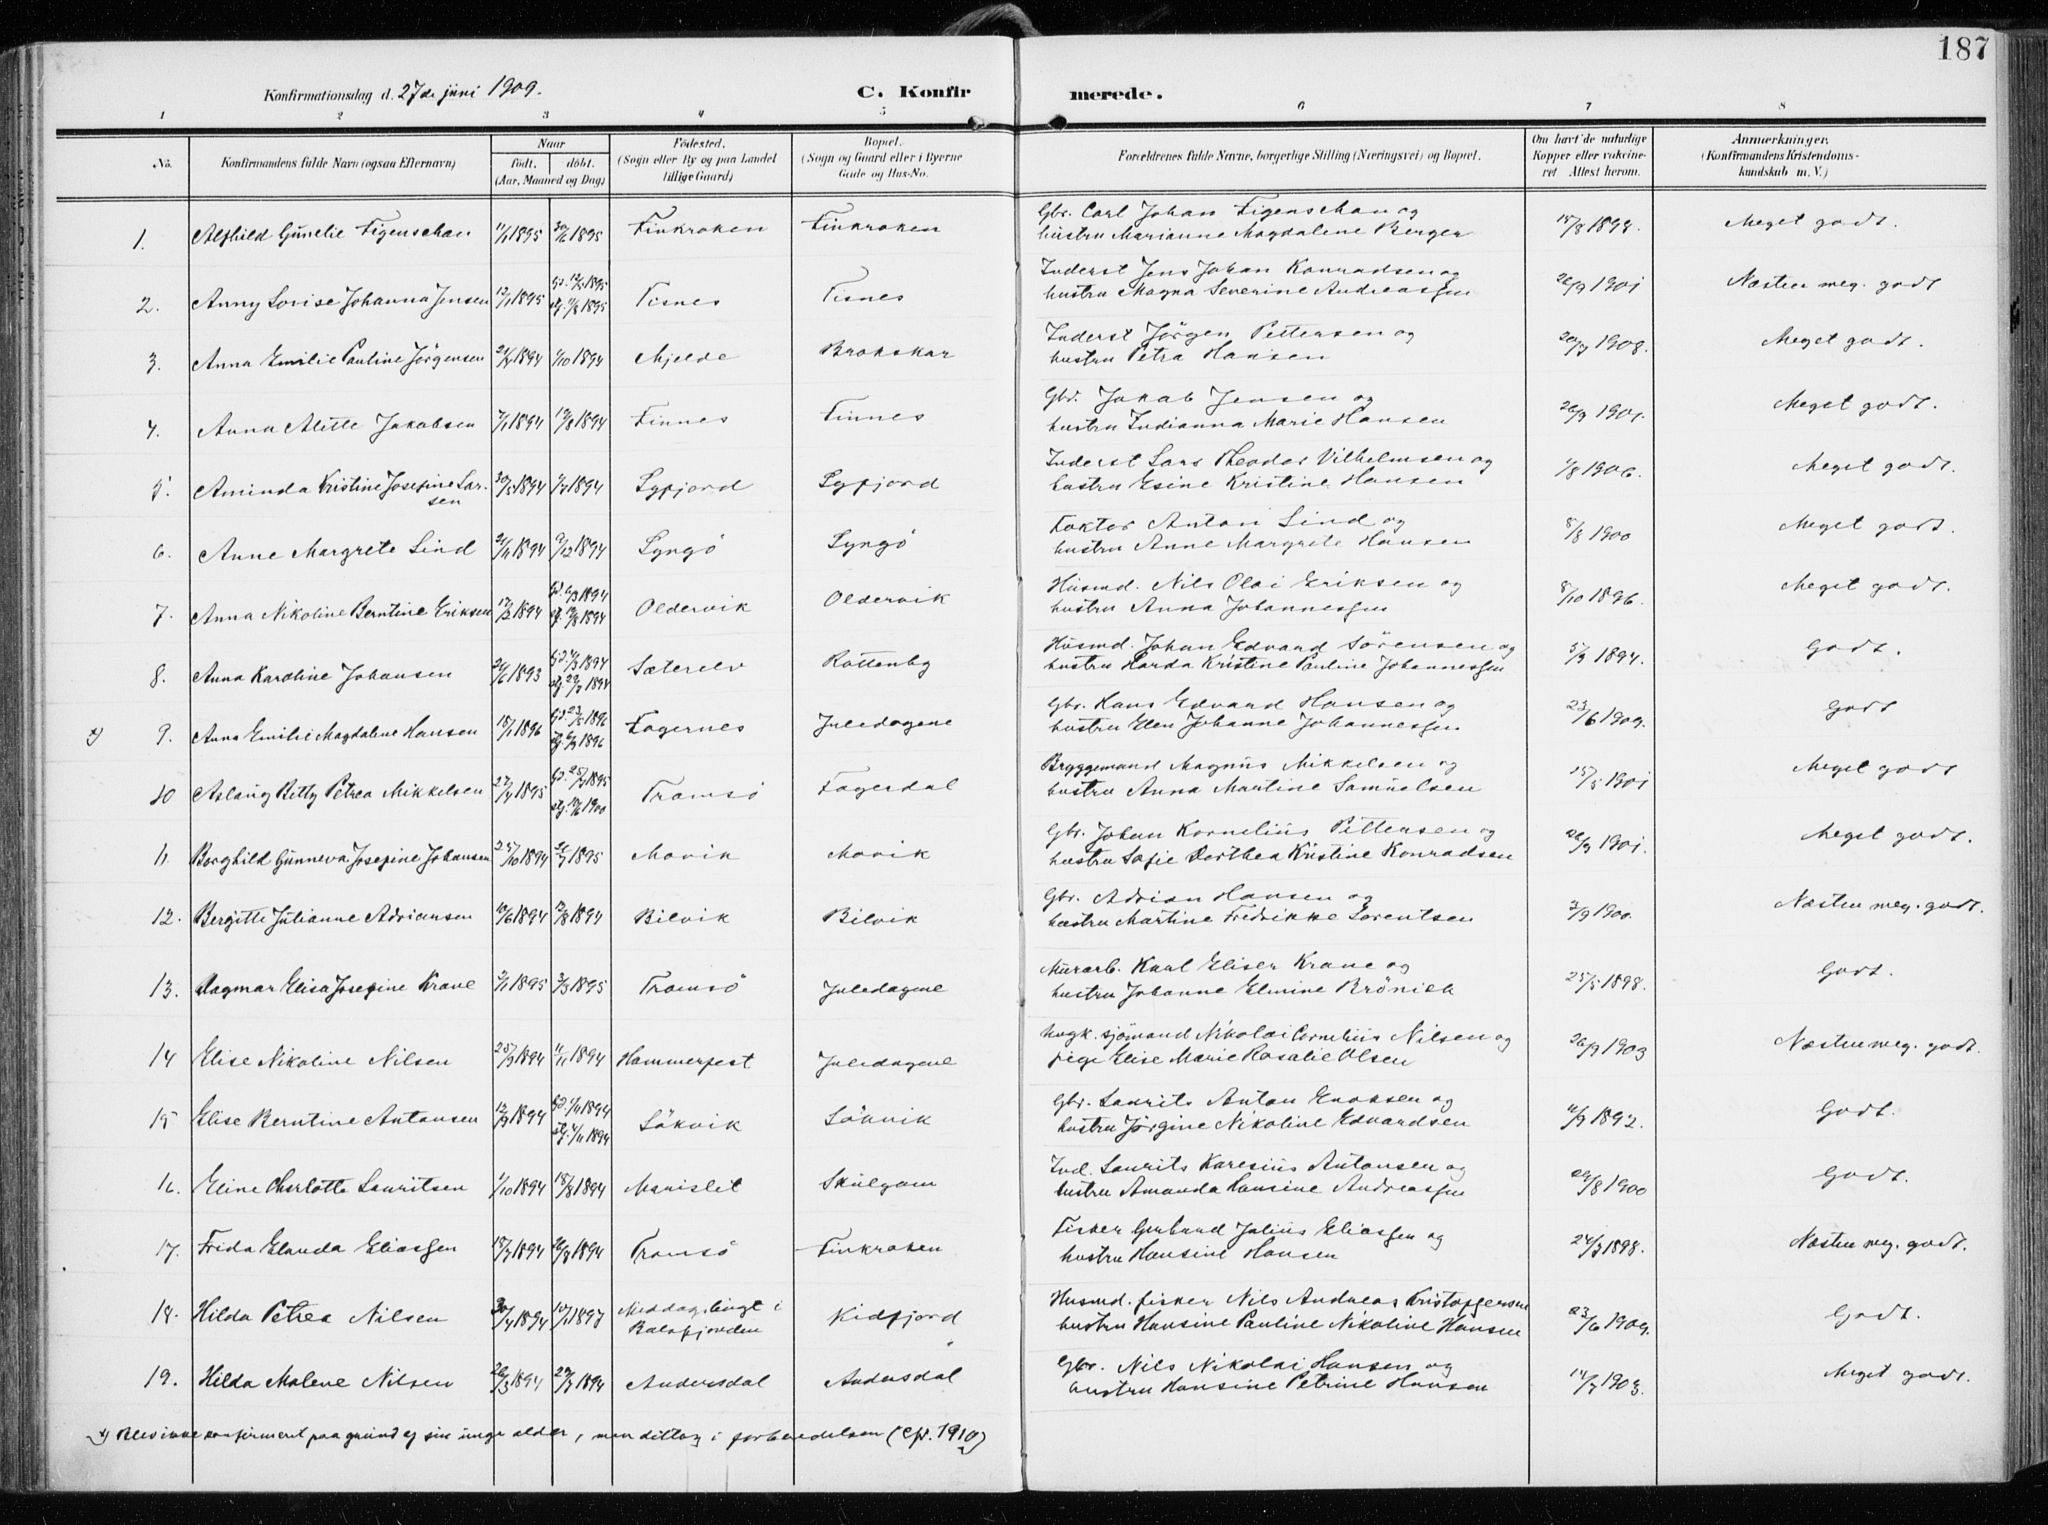 187
Konfirmationsdag d. 27de juni 1909. C. Konfirmerede.
1 2 3 4 5 6 7 8
No. Konfirmandens fulde Navn (ogsaa Efternavn) Naar født. døbt. (Aar, Maaned og Dag) Fødested. (Sogn eller By og paa Landet tillige Gaard) Bopæl. (Sogn og Gaard eller i Byerne Gade og Hus-No. Forældrenes fulde Navne, borgerlige Stilling (Næringsvei) og Bopæl. Om havt de naturlige Kopper eller vakcineret Attest herom. Anmærkninger. (Konfirmandens Kristendomskundskab m. V.)
1. Alfhild Gunelie Figenschau 11/1 1895 1895 Finkroken Finkroken Gbr. Carl Johan Figenschau og
hustru Marianne Magdalene Berger 15/8 1898. Meget godt.
2. Anny Lovise Johanna Jensen 12/1 1895 1895 Tisnes Tisnes Inderst Jens Johan Konradsen og
hustru Magna Severine Andreassen 26/9 1901 Næsten meg. godt
3. Anna Emilie Pauline Jörgensen 1894 1/10 1894 Mjelde Brokskar Inderst Jörgen Pettersen og
hustru Petra Hansen 1908. Meget godt.
4. Anna Alette Jakobsen 7/1 1894 19/8 1894 Finnes Finnes Gbr. Jakob Jensen og
hustru Indianna Marie Hansen 26/9 1901. Meget godt.
5. Aminda Kristine Josefine Larsen 1894 1894 Sgfjord Sgfjord Inderst Lars Theodor Vilhelmsen og
hustru Esine Kristine Hansen 1/8 1906. Meget godt.
6. Anne Margrete Lind 1894 9/12 1894 Lyngö Lyngö Faktor Anton Lind og
hustru Anne Margrete Hansen 8/8 1900 Meget godt.
7. Anna Nikoline Berntine Eriksen 1894 1894 1894 Oldervik Oldervik Husmd. Nils Olai Eriksen og
hustru Anna Johannessen 8/10 1896. Meget godt.
8. Anna Karoline Johansen 1893 1894 1894 Sæterelv Rottenby Husmd. Johan Edvard Sörensen og
hustru Harda Kristine Pauline Johannessen 5/9 1894. Godt.
x) 9. Anna Emilie Magdalene Hansen 18/1 1896 1896 1896 Fagernes Juledagene Gbr. Hans Edvard Hansen og
hustru Elen Johanne Johannessen 23/6 1909. Godt
10 Aslaug Betty Petrea Mikkelsen 1895 1895 1900 Tromsö Fagerdal Bryggemand Magnus Mikkelsen og
hustru Anna Martine Samuelsen 15/5 1901 Meget godt
11 Borghild Gunneva Josefine Johansen 25/10 1894 1895 Movik Movik Gbr. Johan Kornelius Pettersen og
hustru Sofie Dorthea Kristine Konradsen 26/9 1901. Meget godt.
12. Bergitte Julianne Adriansen 1894 1894 Bilvik Bilvik Gbr. Adrian Hansen og
hustru Martine Fredrikke Lorentsen 1900. Næsten meg. godt.
13. Dagmar Elisa Josefine Krane 1895 3/3 1895 Tromsö Juledagene Murarb. Karl Eliser Krane og
hustru Johanne Elmine Brönick 25/5 1898. Godt.
14 Elise Nikoline Nilsen 25/9 1894 11/11 1894 Hammerfest Juledagene Ungk. sjömand Nikolai Cornelius Nilsen og
pige Elise Marie Rosalie Olsen 26/9 1903 Næsten meg. godt.
15 Elise Berntine Antonsen 1894 1894 1894 Sökvik Sökvik Gbr. Laurits Anton Enoksen og
hustru Jörgine Nikoline Edvardsen 11/9 1892. Godt.
16. Eline Charlotte Lauritsen 1/10 1894 18/8 1894 Marislet Skulgam Ind. Laurits Karesius Antonsen og
hustru Amanda Hansine Andreassen 29/8 1900 Godt.
17. Frida Elauda Eliassen 1894 1894 Tromsö Finkroken Fisker Gerhard Julius Eliassen og
hustru Hansine Hansen 24/9 1898. Næsten meg. godt.
18. Hilda Petrea Nilsen 30/4 1894 1897 Meddagsbugt i
Balsfjorden Kidfjord Husmd. fisker Nils Andreas Kristoffersen
hustru Hansine Pauline Nikoline Hansen 23/6 1909. Godt.
19. Hilda Malene Nilsen 26/3 1894 1894 Andersdal Andersdal Gbr. Nils Nikolai Hansen og
hustru Hansine Petrine Hansen 1903. Meget godt.
x) Blev ikke konfirmert paa grund af sin unge alder, men deltog i forberedelsen (cfr. 1910)